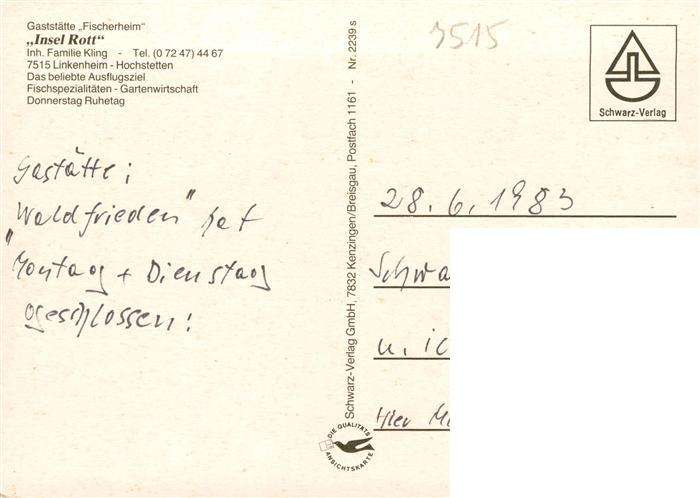 Gaststätte „Fischerheim"
„Insel Rott"
Inh. Familie Kling - Tel. (0 72 47) 44 67
7515 Linkenheim - Hochstetten
Das beliebte Ausflugsziel
Fischspezialitäten - Gartenwirtschaft
Donnerstag Ruhetag
Gastätte;
„Waldfrieden" hat
Montag + Dienstag
geschlossen!
Schwarz-Verlag GmbH, 7832 Kenzingen/Breisgau, Postfach 1161 - Nr. 2239 s
DIE QUALITÄTS
ANSICHTSKARTE
7515
Schwarz-Verlag
28.6.1983
Schwa
u. ic
Hier M